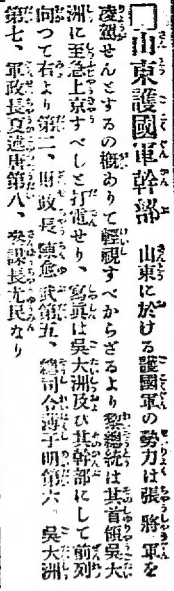 □山東護國軍幹部 山東に於ける護國軍の勢力は張將軍を
凌駕せんとするの槪ありて輕視すべからざるより黎總統は其首領吳大
洲に至急上京すべしと打電せり、寫眞は吳大洲及び其幹部にして前列
向つて右より第二、財政長陳愈武第五、總司令薄子明第六 吳大洲
第七、軍政長夏遮唐第八、參謀長尤民なり